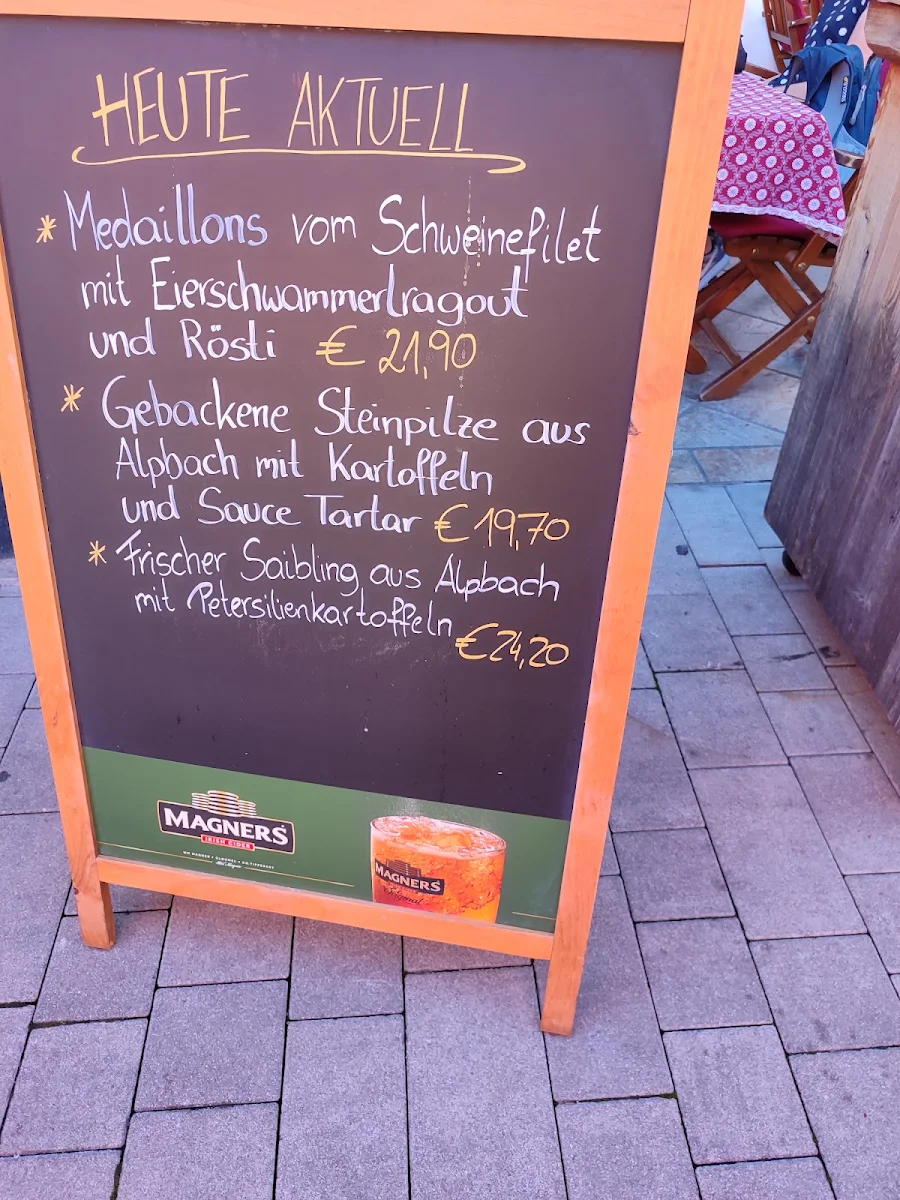 HEUTE AKTUELL
* Medaillons vom Schweinefilet
mit Eierschwammerlragout
und Rösti € 21,90
* Gebackene Steinpilze aus
Alpbach mit Kartoffeln
und Sauce Tartar € 19,70
* Frischer Saibling aus Alpbach
mit Petersilienkartoffeln
€ 24,20
MAGNERS
IRISH CIDER
MAGNERS
Original